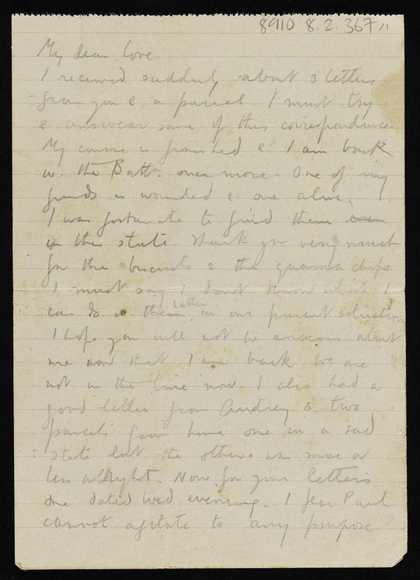 8910 8.2.367/1
My dear love
I received suddenly about 3 letters
from you & a parcel. I must try
& answear some of this correspondence.
My course is finished & I am back
w. the Battn. once more. One of my
friends is wounded & one alive,
I was fortunate to find them even
in this state. Thank you very much
for the biscuits & the
I must say I dont know which I
can do
better
in our present situation
I hope you will not be anxious about
me now that I am back. We are
not in the line now. I also had a
good letter from Audrey & two
parcels from home one in a sad
state but the others in more or
less allright. Now for your letters
one dated Wed evening. I fear Paul
cannot agitate to any purpose